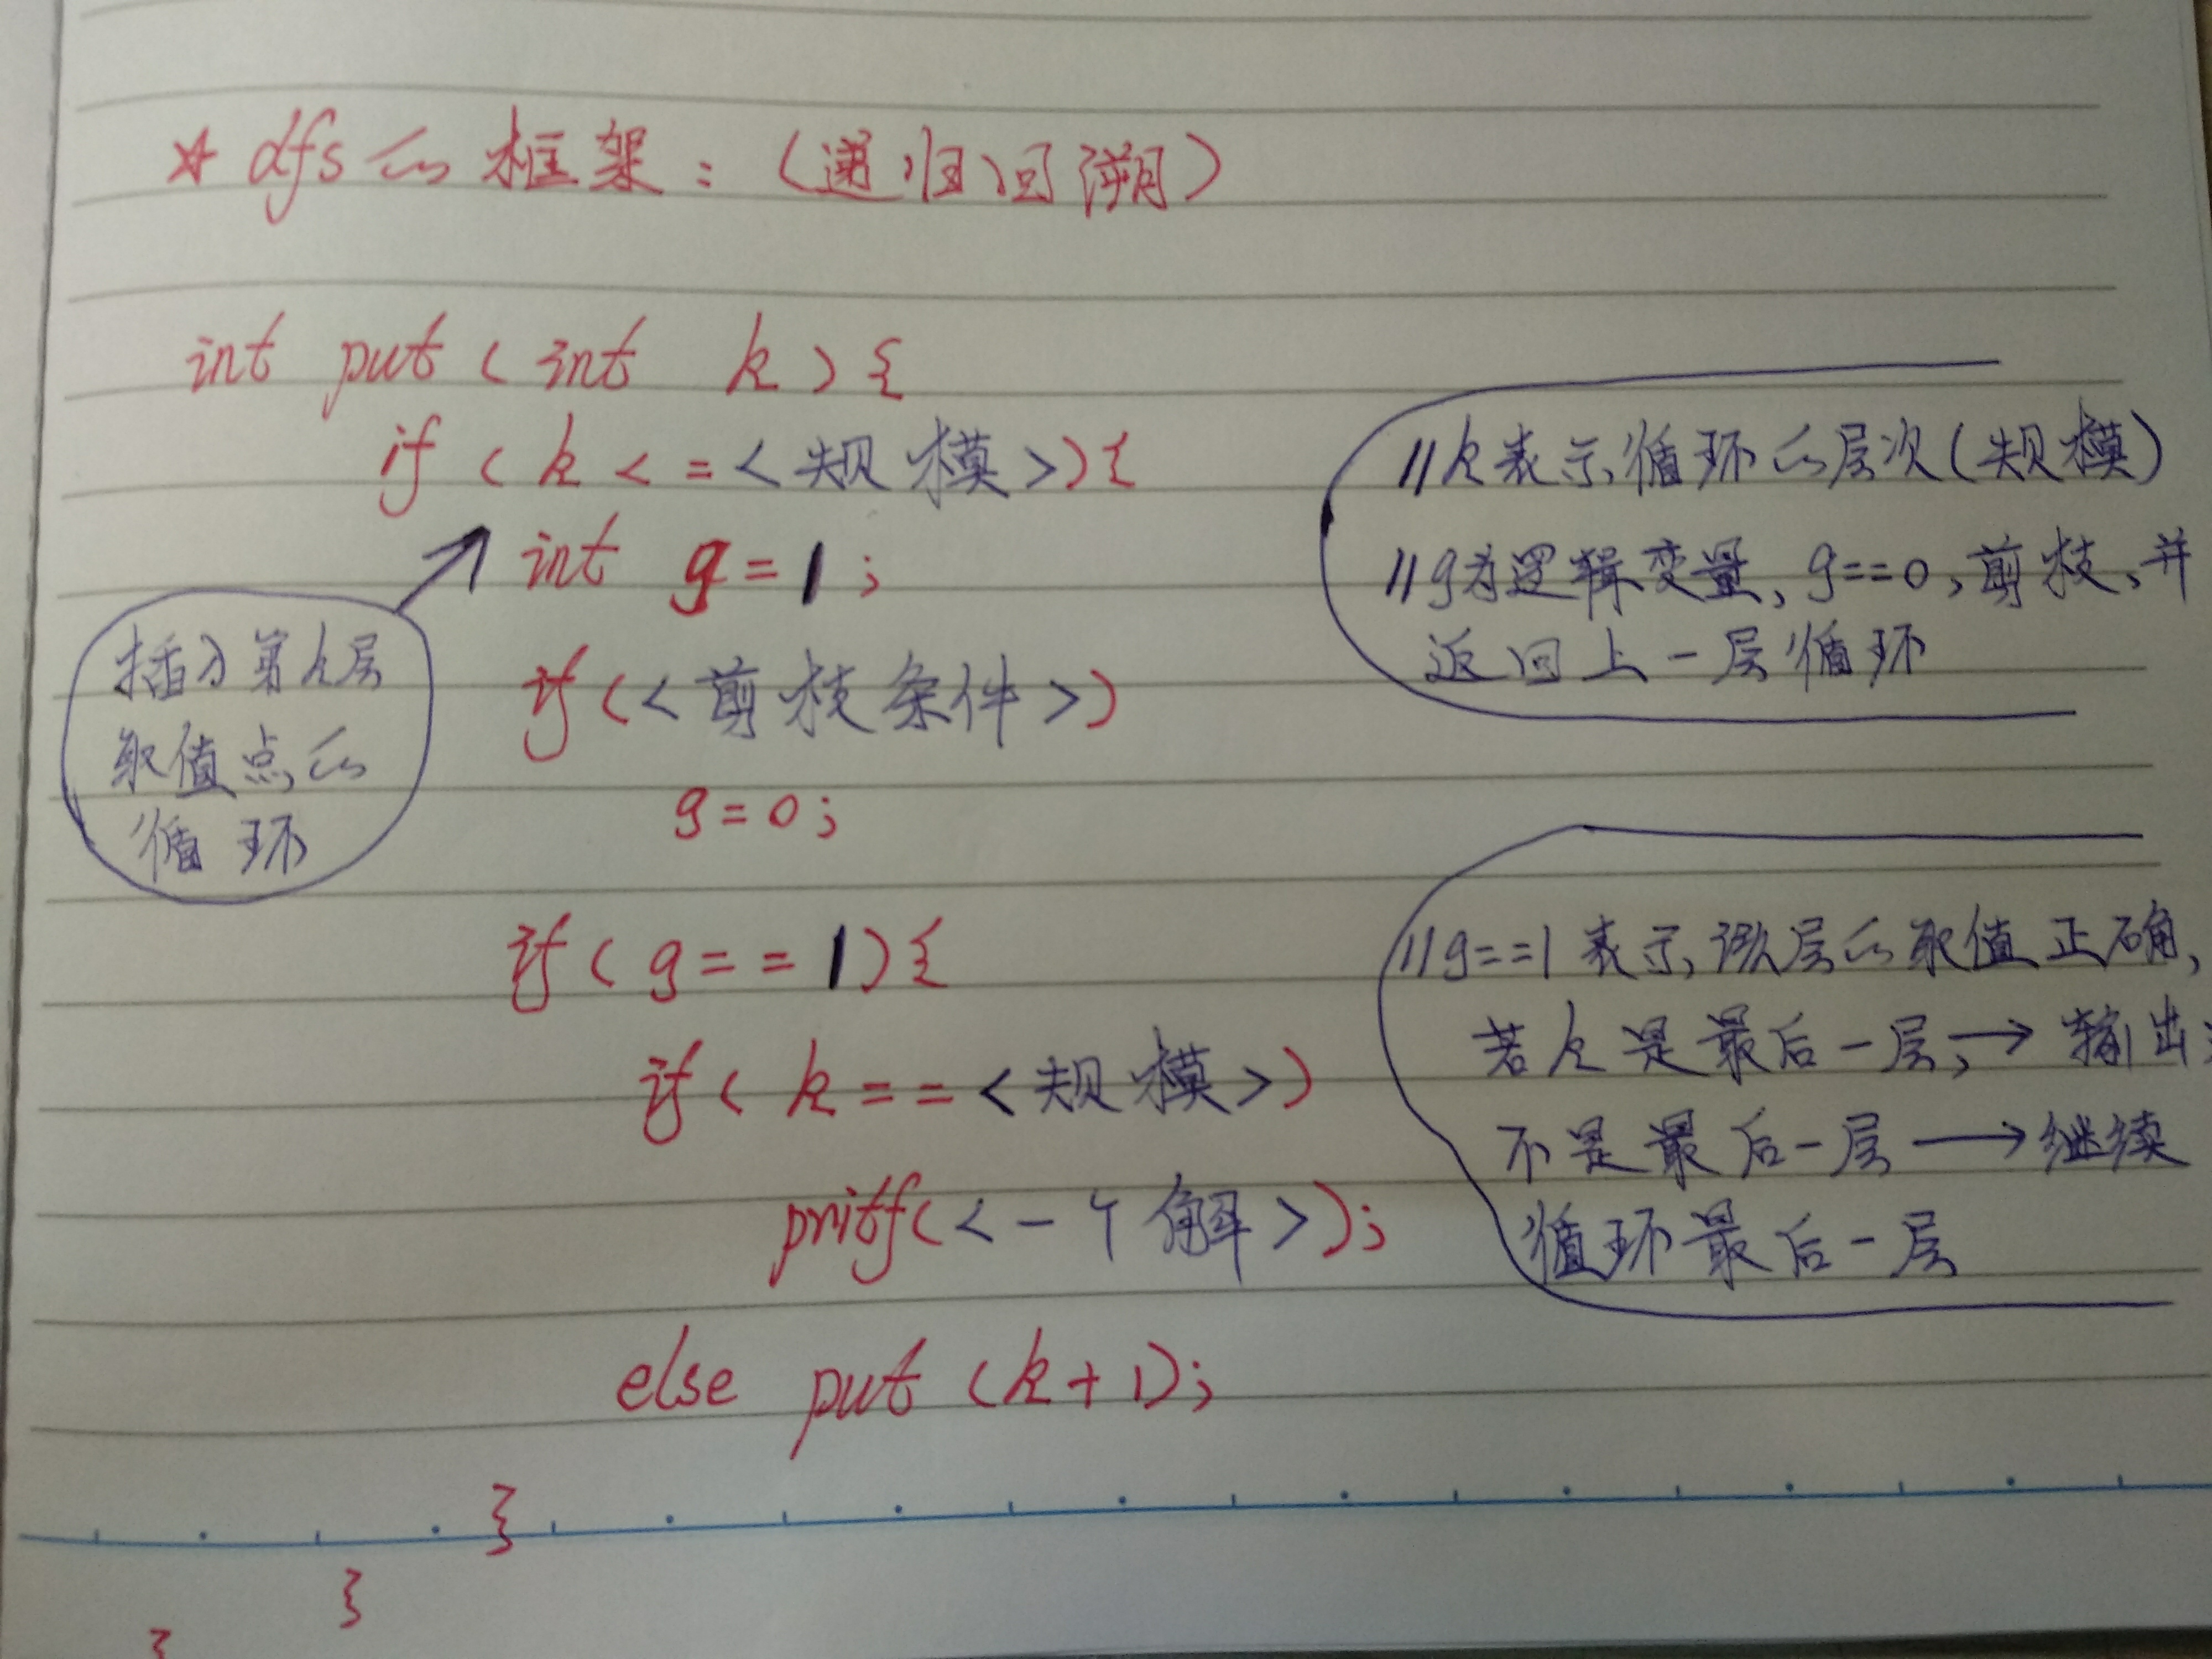 ☆ dfs 的框架：（递归回溯）
int put ( int k ) {
if ( k < = <规模>) {
int g = 1 ;
if (<剪枝条件>)
g = 0 ;
if ( g = = 1) {
if ( k = = <规模>)
pritf(<一个解>);
else put (k+1);
}
}
}
插入第k层
取值点的
循环
//k表示循环的层次(规模)
//g为逻辑变量, g==0,剪枝,并
返回上一层循环
//g==1表示该层的取值正确,
若k是最后一层,→输出
不是最后一层→继续
循环最后一层